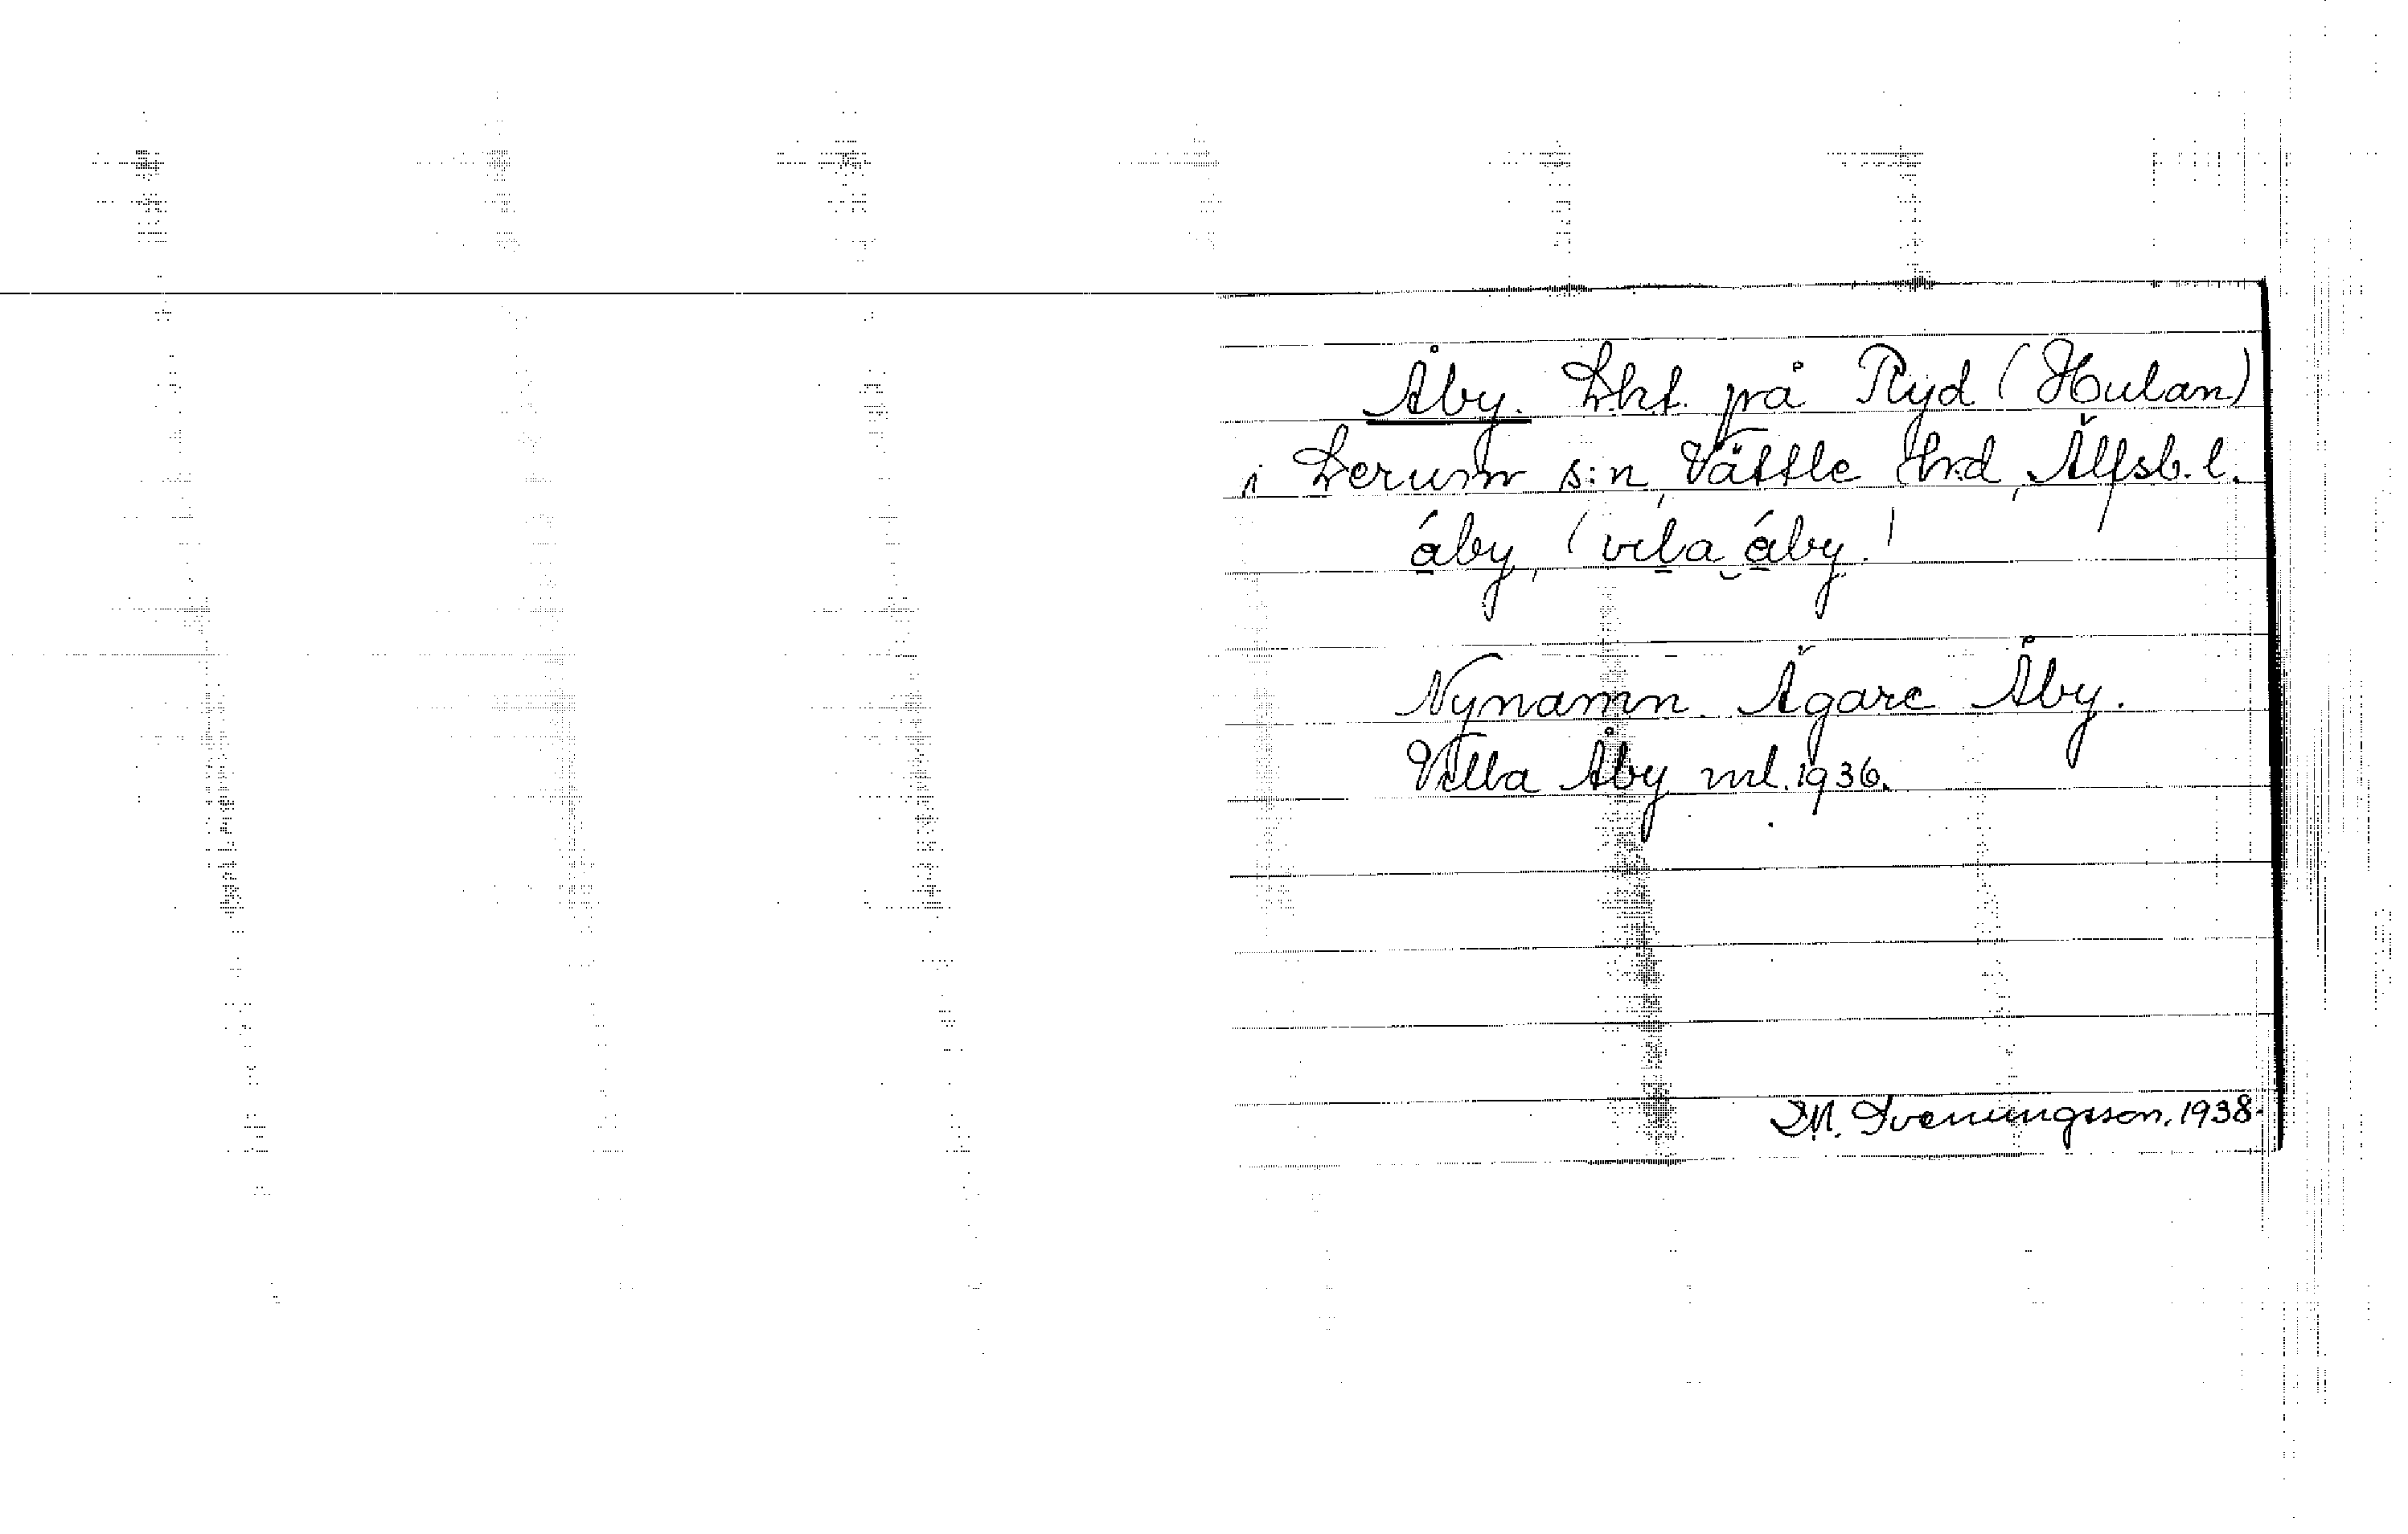 Åby. Lht. på Ryd (Hulan)
i Lerum s:n, Vättle hrd, Älfsb. l.
áby, (vila áby.)
Nynamn. Ägare Åby.
Villa Åby ml. 1936.
D.M. Svenungsson. 1938.